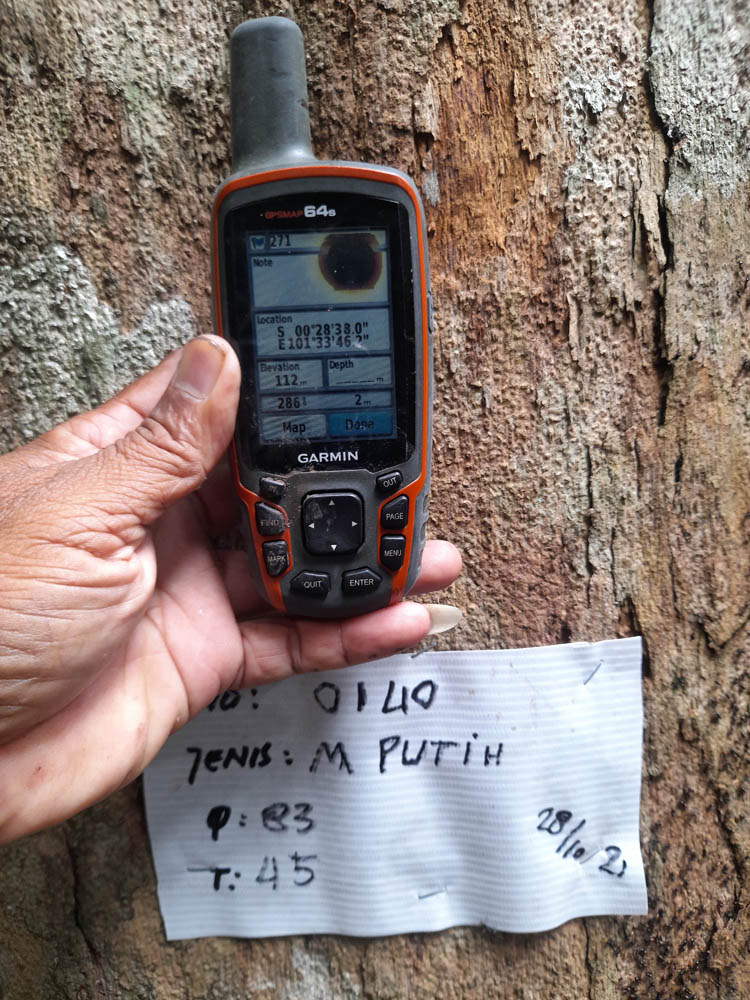 GPSMAP 64s
271
Note
Location
S 00°28'38.0"
E101°33'46.2"
Elevation Depth
112m _____m
286° 2m
Map Done
GARMIN
OUT
FIND PAGE
MARK MENU
QUIT ENTER
: 0140
JENIS: M PUTIH
φ: 83
T: 45
28/10/2